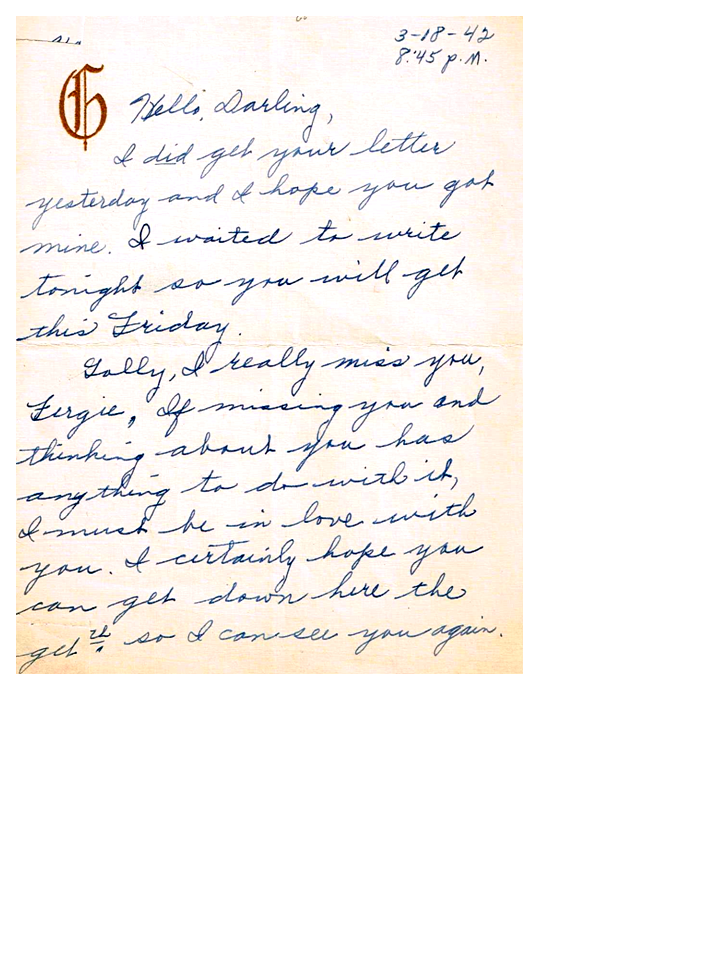 3-18-42
8:45 p.M.
G
Hello, Darling,
I did get your letter
yesterday and I hope you got
mine. I waited to write
tonight so you will get
this Friday.
Golly, I really miss you,
Fergie, If missing you and
thinking about you has
anything to do with it,
I must be in love with
you. I certainly hope you
can get down here the
get so I can see you again.